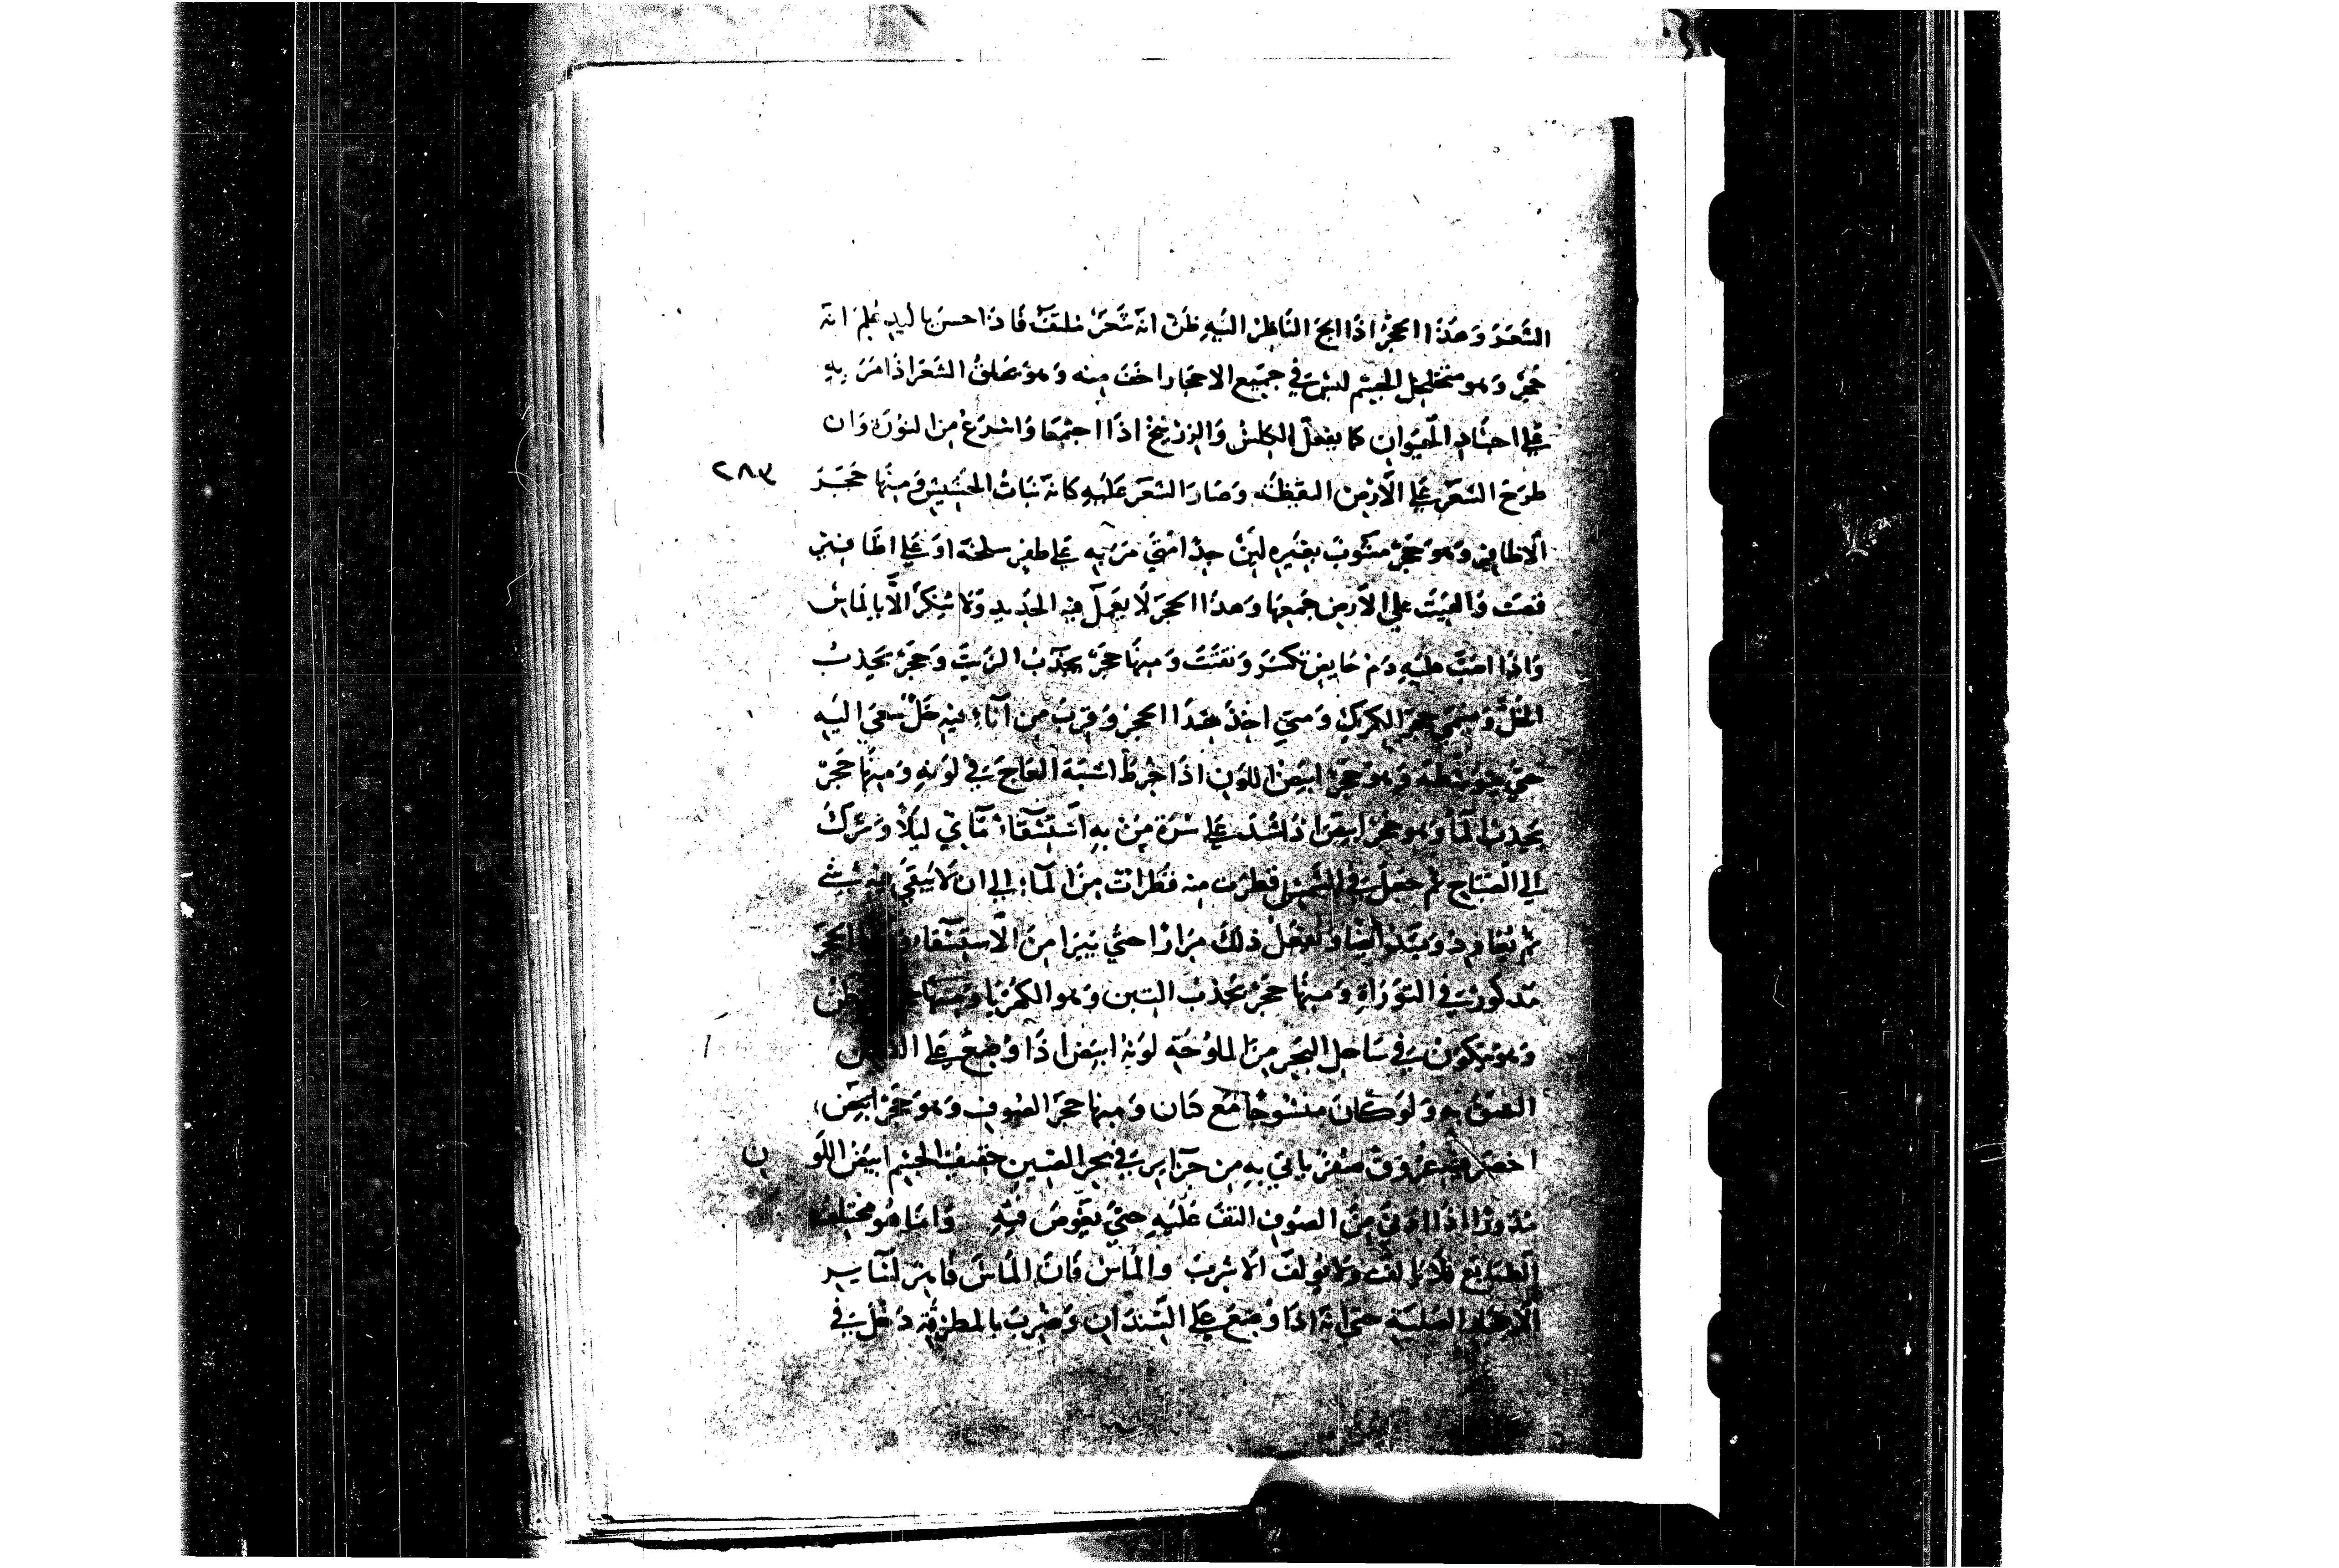 الشَعَر وَهَذا الحجَرُ اذَا الجَ النَاظِرُ اليَهِ ظَنّ انهَ شَعَرُ ملتفّ فَاذَا حسَن باليَدِ عُلِمَ انه
حَجَرٌ وَهو متخلخِل الجسْم ليسَ في جَميع الاحجَار اخفّ مِنه وَهوَ يحلقُ الشعَر اذَا مَرّ بِهِ
عَلي اجسَادِ الحيَوانِ كما يفعَل الكِلسُ وَالزِرنيخُ اذَا اجتمعَا وَاسْرَعُ مِن النورَة وَان
طرَحَ الشعَر عَلي الأرْضِ التقطهُ وَصَارَ الشعَر عَليهِ كانهَ نبَاتُ الحشيش وَمِنهَا حَجَرُ
٢٨٣
الاظافِر وَهوَ حَجَرٌ مَشوبٌ بصُفرِه ليّنٌ جدًا مَتيَ مَرّ بهِ عَلي ظفرٍ سلخهَ اوَ عَلي اظَافِيرٍ
قصت وَالقيَت علي الأرضِ جَمعهَا وَهذَا الحجَر لَا يعَمل فيهِ الحدَيد وَلا ينكسِرُ الّا بالمَاسِ
وَاذَا صبّ عَليهِ دَم حَايضٍ تكسرَ وَتفتتَ وَمِنهَا حجَرٌ يجذبُ الزَيتَ وَحجَرٌ يَجذبُ
الخلّ وَيسَمي حجَرَ الكركِ وَمتي اخِذَ هَذَا الحجَرُ وَقرِبَ مِن انَاءٍ فيهِ خَلٌ سَعَي اليَهِ
حَتيّ وَهوَ حجَرٌ ابيَض اللوَن اذَا خُرطَ اشبَهَ العَاجَ في لوَنهِ وَمِنهَا حَجَرٌ
يجذبُ المَاء وَهوَ حجَرٌ ابيَض اذَا شُدّ عَلي سُرّةِ مَنْ بهِ استسقَاء مَائي ليَلًا وَترَكَ
اليَ الصَبَاحِ ثم جعَل في الشمسِ قطرَت مِنه قطرَات مِنَ المَاءِ الي ان لَا يبَقيَ فيهِ شيء
ثم يُعَاودُ وَيشد ايضًا وَيفعَل ذلكَ مِرَارًا حتيّ يبَرا مِنَ الاستسقَاءِ وَهَذا الحجَر
مَذكورٌ في التوَرَاةِ وَمِنهَا حجَرٌ يجذبُ التبن وَهو الكهرُبَا وَمِنهَا
وَهوَ يَكوَنُ في سَاحِل البَحرِ مِنَ الملوُحَةِ لوَنهُ ابيَض اذَا وُضِعَ عَلي
التصَقَ بهِ وَلوَ كَانَ مَنسُوجًا مَع كتان وَمِنهَا حجَر الصُوفِ وَهوَ حجَرٌ ابيَض
اخضَر فيهِ عُرُوقٌ صُفرٌ ياتي بهِ مِن جَزَايرِ في بحرِ الصِينِ خفيف الجسْمِ ابيَض اللَو ن
مُدَورًا اذَا ادنيَ مِنَ الصُوفِ التفّ عَليَهِ حتيّ يغُوصَ فيهِ وَامَا هوَ مختلِف
الطبَايع فلَا يَا لفُ وَلا يُولفُ الا بترَب وَالمَاسُ فَانَ المَاسَ قَاهِر لسَاير
الاحجَارِ الصُلبَة حتيّ انهَ اذَا وُضِعَ عَلي السَندَانِ وَضُرِبَ بالمطرَقةِ دَخَل في